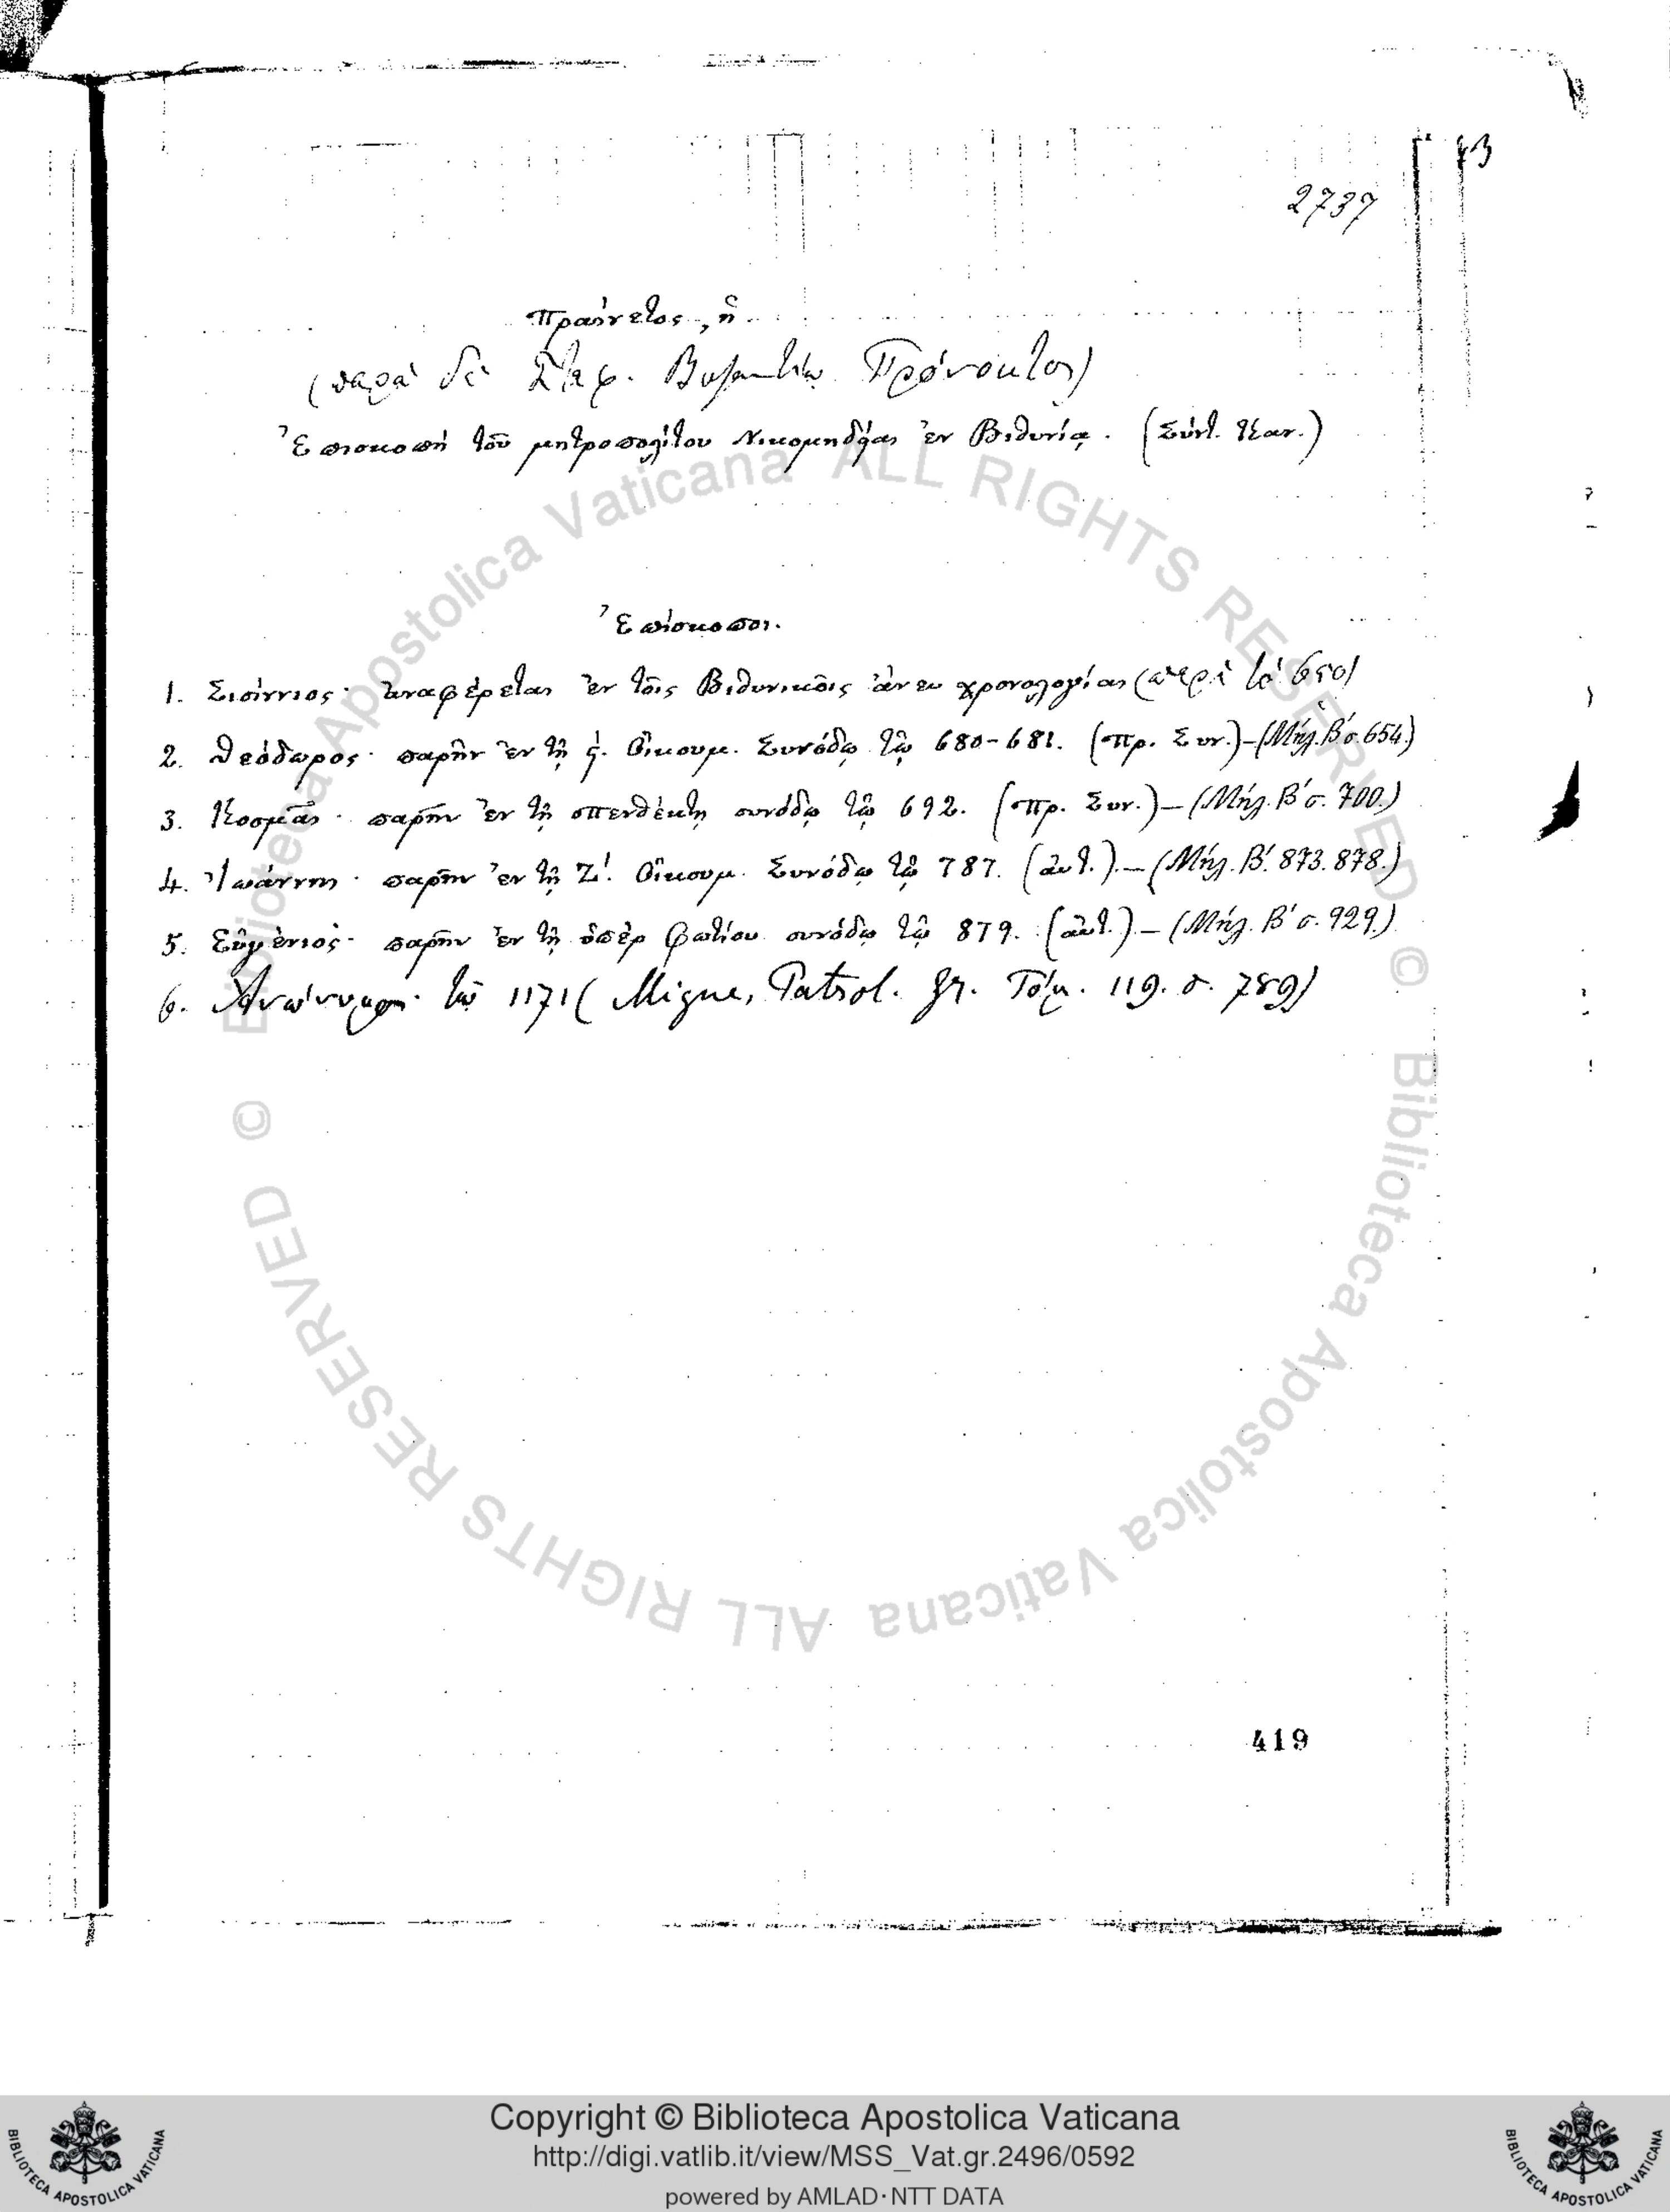 73
2737
Πραίνετος, ἢ
(παρὰ δὲ Στεφ. Βυζαντίῳ Πρόνεκτος)
Ἐπισκοπὴ τοῦ μητροπολίτου Νικομηδείας ἐν Βιθυνίᾳ. (Σύντ. Καν.)
Ἐπίσκοποι.
1. Σισίννιος· ἀναφέρεται ἐν τοῖς Βιθυνικοῖς ἄνευ χρονολογίας (περὶ τὸ 650)
2. Θεόδωρος· παρῆν ἐν τῇ ϛ΄. Οἰκουμ. Συνόδῳ τῷ 680-681. (Πρ. Συν.)-(Μήλ. Β΄ σ. 654.)
3. Κοσμᾶς· παρῆν ἐν τῇ πενθέκτῃ συνόδῳ τῷ 692. (Πρ. Συν.)-(Μήλ. Β΄ σ. 700.)
4. Ἰωάννης· παρῆν ἐν τῇ Ζ΄. Οἰκουμ. Συνόδῳ τῷ 787. (αὐτ.).-(Μήλ. Β΄. 873. 878.)
5. Εὐγένιος· παρῆν ἐν τῇ ὑπὲρ Φωτίου συνόδῳ τῷ 879. (αὐτ.)-(Μήλ. Β΄ σ. 929.)
6. Ἀνώνυμος· τῷ 1171 (Migne, Patrol. gr. Τόμ. 119. σ. 789)
419
© Biblioteca Apostolica Vaticana ALL RIGHTS RESERVED
© Biblioteca Apostolica Vaticana ALL RIGHTS RESERVED
Copyright © Biblioteca Apostolica Vaticana
http://digi.vatlib.it/view/MSS_Vat.gr.2496/0592
powered by AMLAD·NTT DATA
BIBLIOTECA APOSTOLICA VATICANA
BIBLIOTECA APOSTOLICA VATICANA